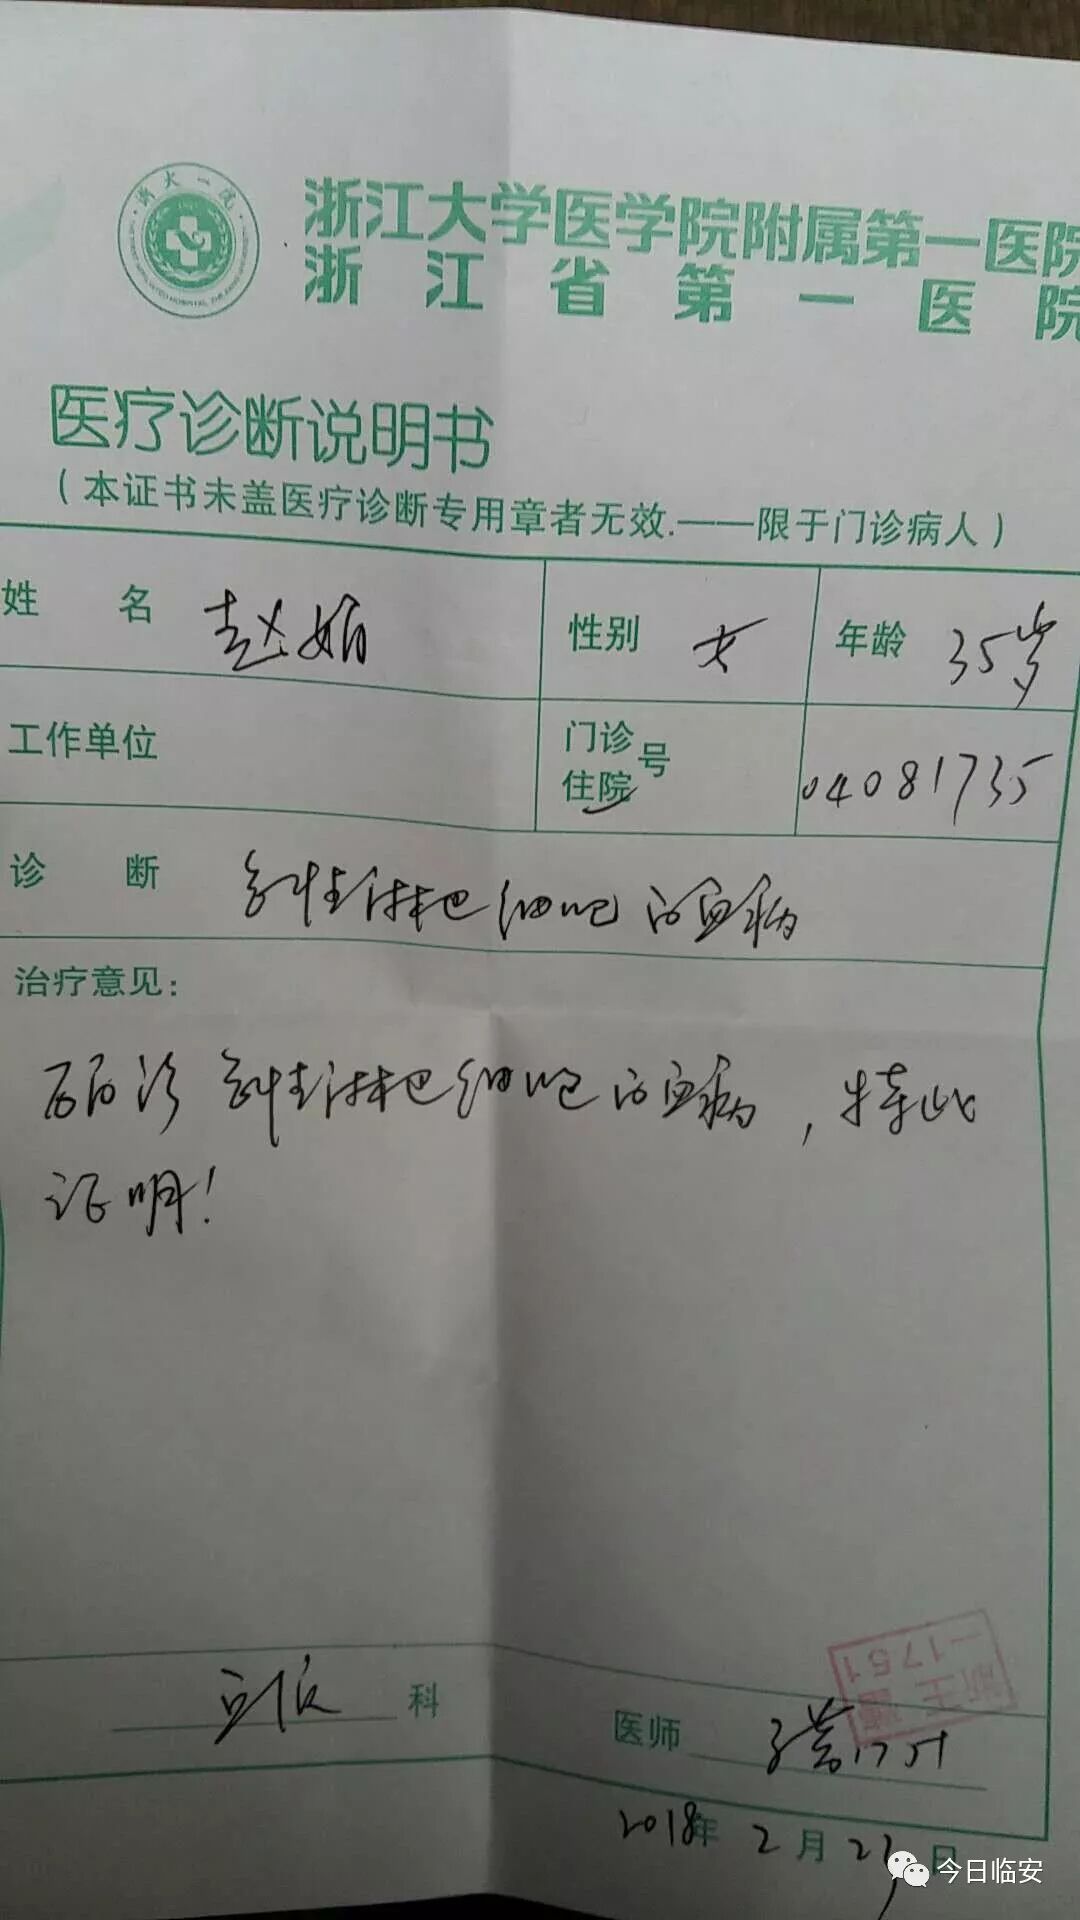 浙大一院
浙江大学医学院附属第一医院
浙江省第一医院
医疗诊断说明书
（本证书未盖医疗诊断专用章者无效.——限于门诊病人）
姓名 赵娟 性别 女 年龄 35岁
工作单位 门诊住院号 04081735
诊断 急性淋巴细胞白血病
治疗意见：
确诊急性淋巴细胞白血病，特此
证明！
科
医师 1751
2018年2月2日
今日临安